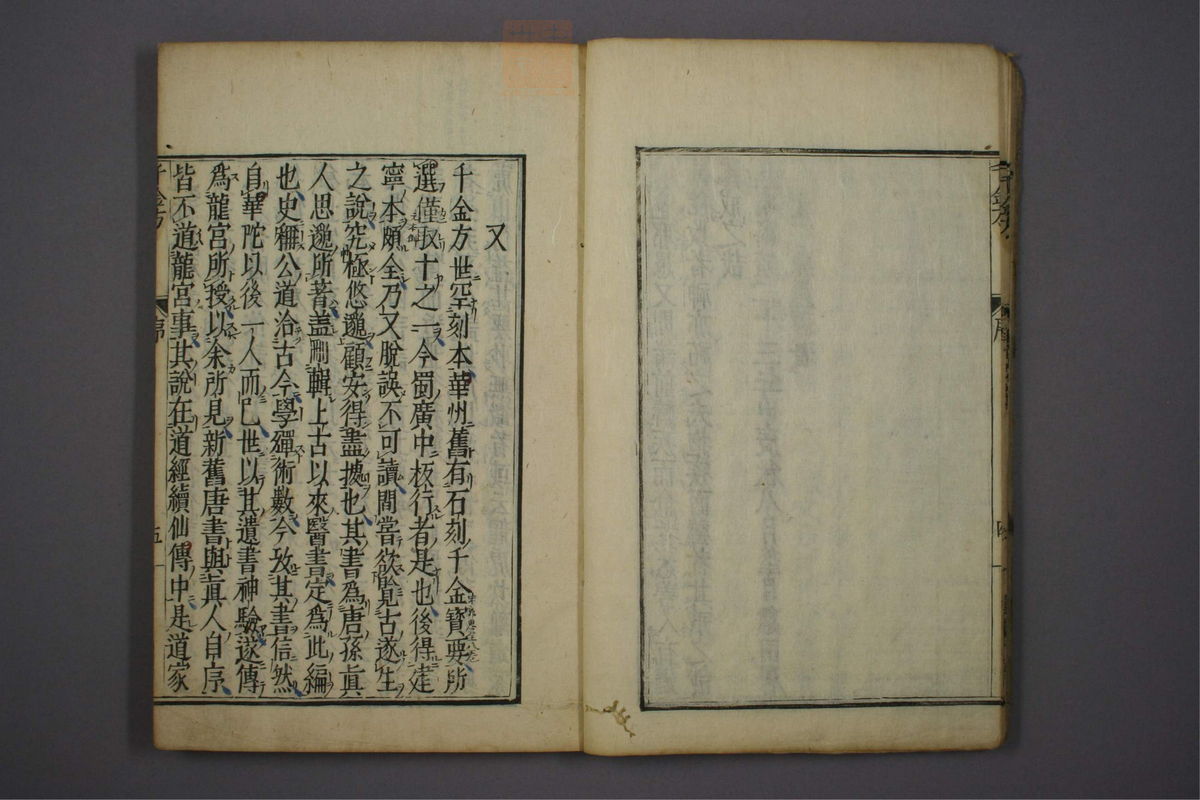 又
千金方世罕刻本華州舊有石刻千金寶要所
選僅取十之一今蜀廣中板行者是也後得建
寧本頗全乃又脫誤不可讀間嘗欲覓古遂生
之說究極悠邈顧安得盡據也其書為唐孫眞
人思邈所著盖刪輯上古以來醫書定為此編
也史稱公道洽古今學殫術數今攷其書信然
自華陀以後一人而已世以其遺書神驗遂傳
為龍宮所授以余所見新舊唐書與眞人自序
皆不道龍宮事其說在道經續仙傳中是道家
千金方
序
五